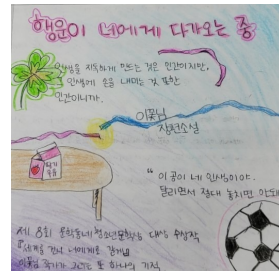 행운이 너에게 다가오는 중
인생을 지독하게 만드는 것은 인간이지만,
그 인생에 손을 내미는 것 또한
인간이니까.
이꽃님
장편소설
딸기
우유
"이 공이 네 인생이야.
달리면서 절대 놓치면 안돼
제 8회 문학동네청소년문학상 대상 수상작
『세계를 건너 너에게 갈게』
이꽃님 작가가 그리는 또 하나의 기적